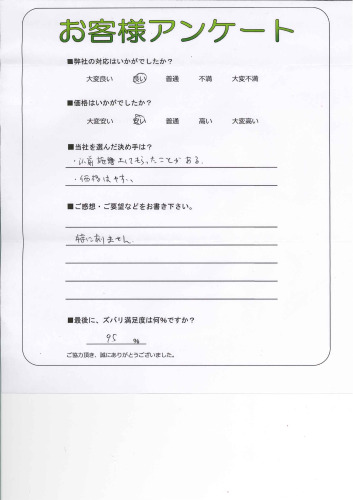 お客様アンケート
■弊社の対応はいかがでしたか？
大変良い 良い 普通 不満 大変不満
■価格はいかがでしたか？
大変安い 安い 普通 高い 大変高い
■当社を選んだ決め手は？
・以前施工してもらったことがある.
・価格は安い、
■ご感想・ご要望などをお書き下さい。
特にありません
■最後に、ズバリ満足度は何％ですか？
95 %
ご協力頂き、誠にありがとうございました。